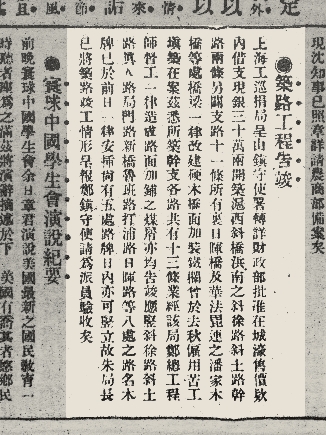 現沈知事已照章詳請農商部備案矣
●築路工程告竣
上海工巡捐局呈由鎮守使署轉詳財政部批准在城濠售價欵
內借支現銀三十萬兩開築滬西斜橋浜南之斜徐路斜土路幹
路兩條另闢支路十一條所有裏日暉橋及華法毘連之潘家木
橋等處橋梁一律改建硬木橋面加裝鐵欄曾於去秋僱用苦工
塡築在案茲悉所築幹支各路共有十三條業經該局鄭總工程
師督工一律造竣路面加鋪之煤屑亦均告竣應竪斜徐路斜土
路眞人路局門路新橋路魯班路打浦路日暉路等八處之路名木
牌已於前日一律安揷尙有五處路牌日內亦可竪立故朱局長
已將築路竣工情形呈報鄭鎮守使請爲派員驗收矣
●寰球中國學生會演說紀要
前晚寰球中國學生會余日章君演說美國最新之國民敎育一
時聽者極爲之滿茲將演辭摘錄於下 美國有喬其者愍鄉民